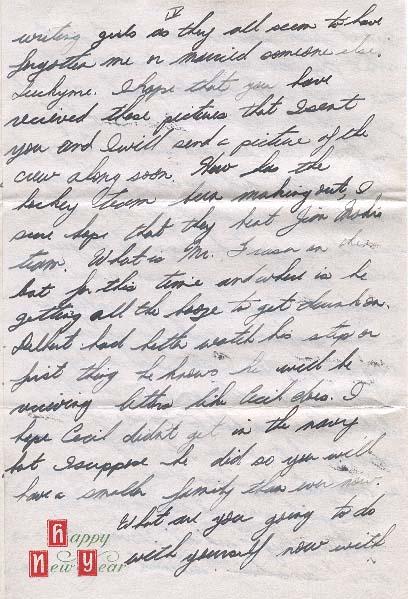 IV
writing girls as they all seem to have
forgotten me or married someone else.
Luckyme. I hope that you have
recieved those pictures that I sent
you and I will send a picture of the
crew along soon. How has the
hockey team been making out, I
sure hope that they beat Jim
team. What is Mr. on
bat for this time and where is he
getting all the booze to get drunk on.
Delbert had better watch his step or
first thing he knows he will be
recieving letters like Cecil does. I
hope Cecil didn't get in the navy
but I suppose he did so you will
have a smaller family than ever now.
What are you going to do
with yourself now with
Happy
New Year